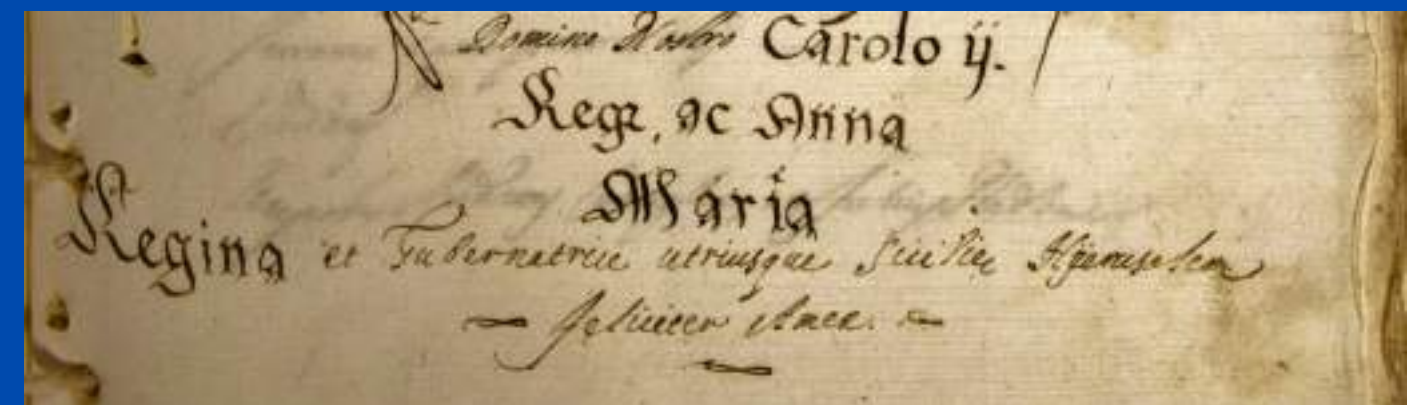 Domino Nostro Carolo ij.
Rege, ac Anna
Maria
Regina et Gubernatrice utriusque Sicilie Hyerusalem
feliciter Amen.